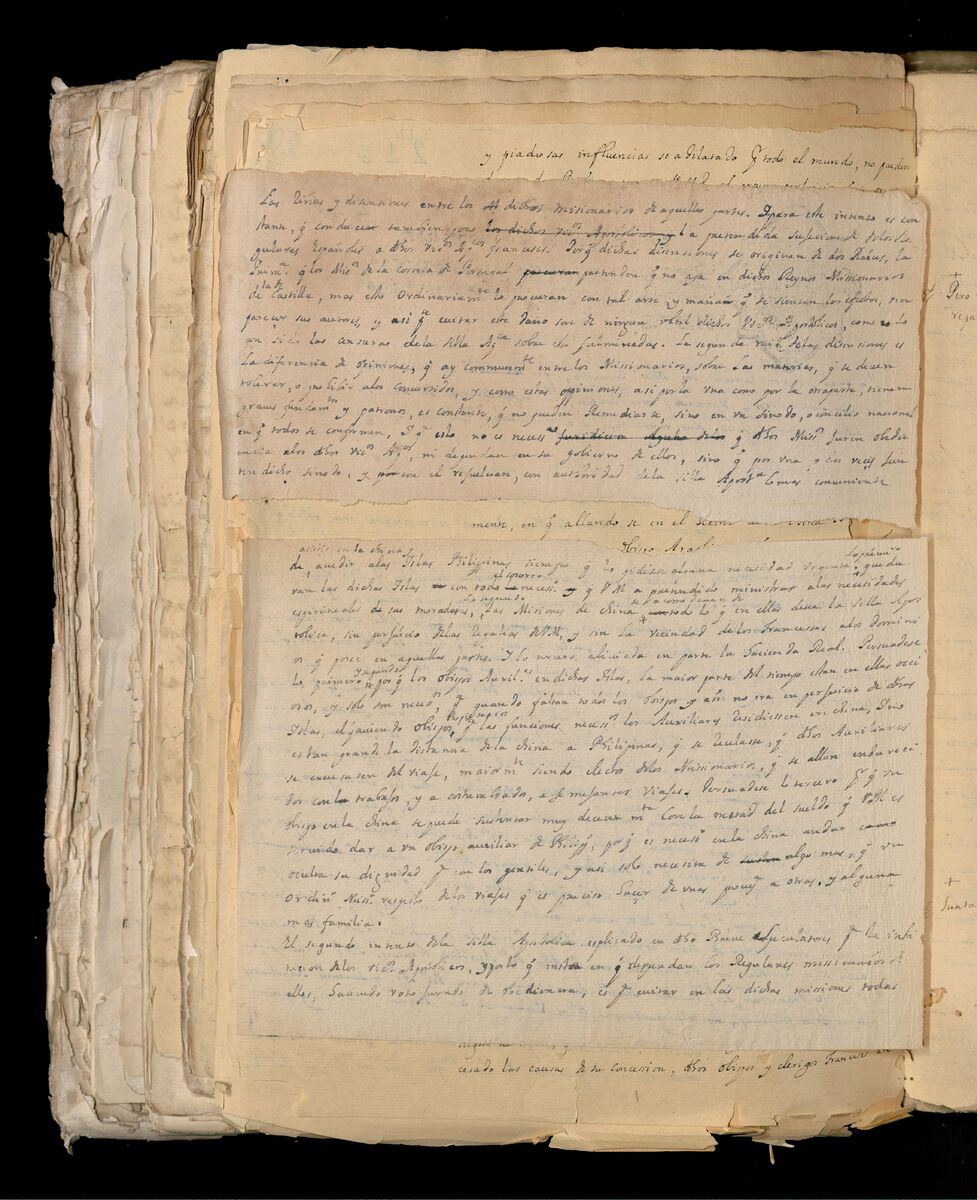 y piadosas influencias se a dilatado pʳ todo el mundo, no pueden
Las liti͂as y disensiones entre los dichos Missionarios de aquellas partes. I para este intento es con
stante, q̃ conducen tambien poco los dichos Vicos Apostolicos y la pretendida sujecion de dhos Re
gulares Españoles a dhos Vicos Apcos franceses. Porq̃ dichas disensiones se originan de dos Raizes, la
q̃ los Missos de la Corona de Portugal procuran pretenden q̃ no aya en dichos Reynos Missionarios
de la de Castilla, mas esto Ordinariamte lo procuran con tal arte, y maña q̃ se sienten los efectos, sin
parecer sus autores, y asi pa evitar este daño son de ningun vtil dichos Vicos Apostolicos, como lo
an sido las censuras de la silla Apca sobre esto fulminadas. La segunda raiz destas disensiones es
la diferencia de opiniones, q̃ ay communmte entre los Missionarios, sobre las materias, q̃ se deven
tolerar, o prohibir a los convertidos, y como estas oppiniones, asi por la vna como por la otra parte, tienen
graves fundamtos y patronos, es constante, q̃ no pueden Remediarse, sino en vn Sinodo, o concilio nacional
en q̃ todos se conforman, I pa esto no es necesso juridicion alguna delos q̃ dhos Missos juren obedi
encia a los dhos Vicos Apcos, ni dependan en su gobierno de ellos, sino q̃ por vna, o dos veces jun
ten dicho sinodo, y con el resuelvan, con autoridad de la silla Apostca lo mas conveniente
mente, en q̃ allando se en el
asistir en la china y
de acudir a las Islas Philippinas siempre q̃ lo pidiese alguna necesidad vrgente, que da
Lo primero
van las dichas Islas con todo el socorro necesso q̃ VM a pretendido ministrar a las necesidades
espirituales de sus moradores, Lo segundo las Misiones de China todo lo q̃ en ellas desea la silla Apos
tolica, sin perjuicio de las Regalias de VM, y sin la vecindad de los franceses, a los domini
os q̃ posee en aquellas partes. I lo tercero, aliviada en parte la Hacienda Real. Persuadese
lo primero, y segundo porq̃ los Obispos Auxiles en dichas Islas, la maior parte del tiempo estan en ellas occi
osos, y solo son necesos, pa quando faltan todos los Obispos y asi no era en perjuicio de dhas
Islas, el q̃ aviendo obispos propios pa las funciones necesas los Auxiliares Residiessen en china, I no
es tan grande la distancia de la China a Philipinas, q̃ se recelase, q̃ dhos Auxiliares
se excusasen del viaje, maiormte siendo electos delos Missionarios, q̃ se allan endureci
dos con trabajos, y a costumbrados, a semejantes viajes. Persuadese lo tercero pʳ q̃ vn
obispo en la China se puede sustentar muy decentemte con la mitad del sueldo q̃ VM es
servido dar a vn obispo auxiliar de Philips; porq̃ es necesso en la China andar
oculta su dignidad pʳ con los gentiles, y asi solo necesita de algo mas, q̃ vn
Ordino Misso. respeto de los viajes q̃ es preciso hacer de vnas provas a otras, y alguna
mas familia.
El segundo intento dela silla Apostolica explicado en dho Breve Speculatores pʳ la insti
tucion delos Vicos Apostolicos, y porlo q̃ insta en q̃ dependan los Regulares missionarios de
ellos, haciendo voto jurado de obediencia, es pʳ evitar en las dichas misiones todas
cesado las causas de su concession, dhos obispos y clerigos franceses en
Pero